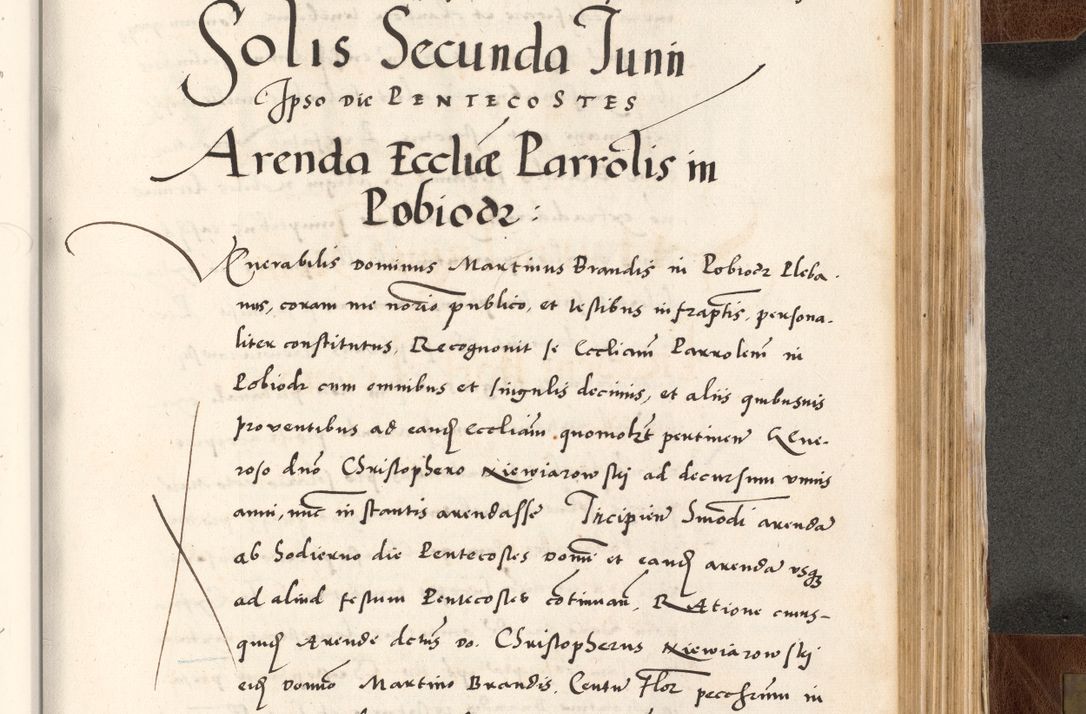 Solis Secunda Junii
Ipso die PENTECOSTES
Arenda Eccliæ Parrolis in
Pobiodr :
Venerabilis Dominus Martinus Brandis in Pobiodr Pleba-
nus, coram me notrio publico, et testibus infraptis, persona-
liter constitutus, Recognouit se Eccliam Parrolem in
Pobiodr cum omnibus et singulis decimis, et aliis quibusuis
prouentibus ad eand Eccliam quomolt pertinen Gene-
roso dno Christophero Niewiarowskj ad decursum vnius
anni, nunc instantis arendasse Incipien Smodi arenda
ab hodierno die Pentecostes Domi et eand arenda vsq3
ad aliud festum Pentecostes cotinuan, RAtione cuius-
quid Arende dctus Do. Christopherus Niewiarowskj
eid Domo Martino Brandis, Centu Flor pecchrum in